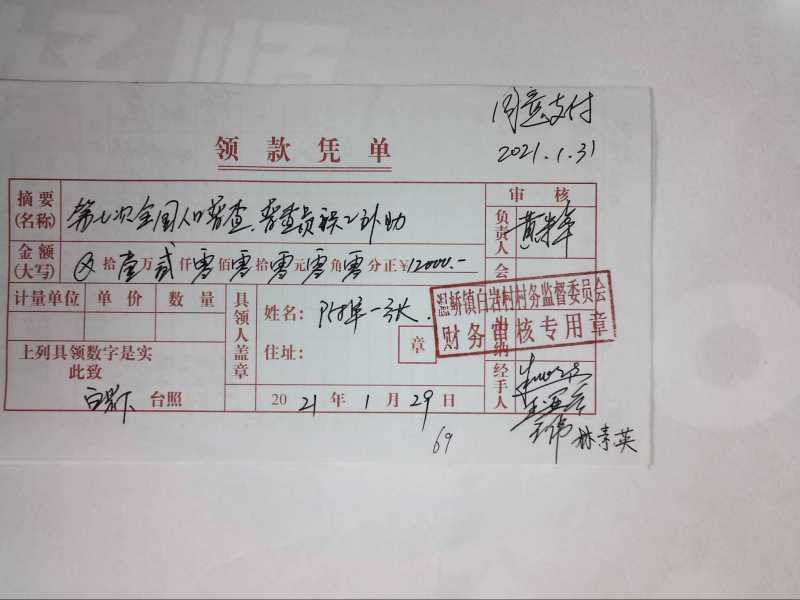 同意支付
2021.1.31
领款凭单
摘要(名称) 第七次全国人口普查、普查员误工补助
审核
负责人
金额(大写) ⊗拾壹万贰仟零佰零拾零元零角零分正￥12000.-
会
计量单位 单价 数量
具领人盖章
姓名: 附单一张
住址:
章
温峤镇白岩村村务监督委员会
财务审核专用章
纳
上列具领数字是实
此致
台照
2021年1月29日
经手人
69
林素英